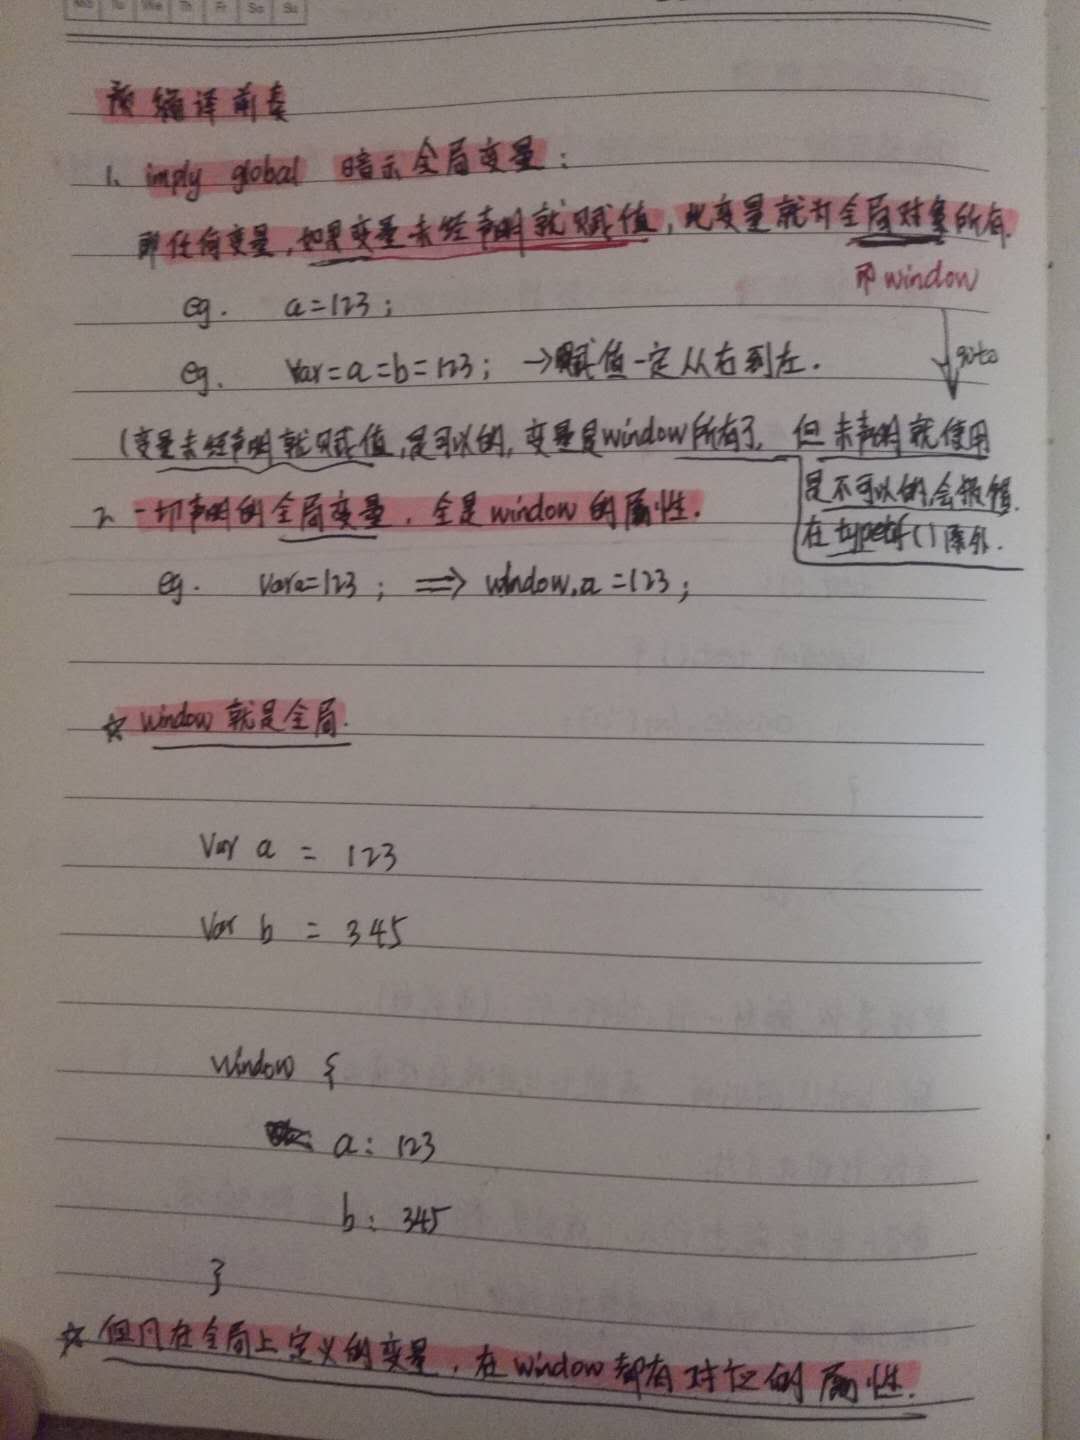 Mo Tu We Th Fr Sa Su
预编译前奏
1. imply global 暗示全局变量：
即任何变量，如果变量未经声明就赋值，此变量就为全局对象所有.
即window
eg. a=123；
goto
eg. Var=a=b=123；→赋值一定从右到左.
(变量未经声明就赋值,是可以的,变量是window所有了, 但未声明就使用
是不可以的,会报错.
2. 一切声明的全局变量，全是window的属性.
在typeof()除外.
eg. Vara=123；⟹ window.a=123；
☆ window就是全局.
Var a = 123
Var b = 345
window {
a: 123
b: 345
}
☆ 但凡在全局上定义的变量，在window都有对应的属性.